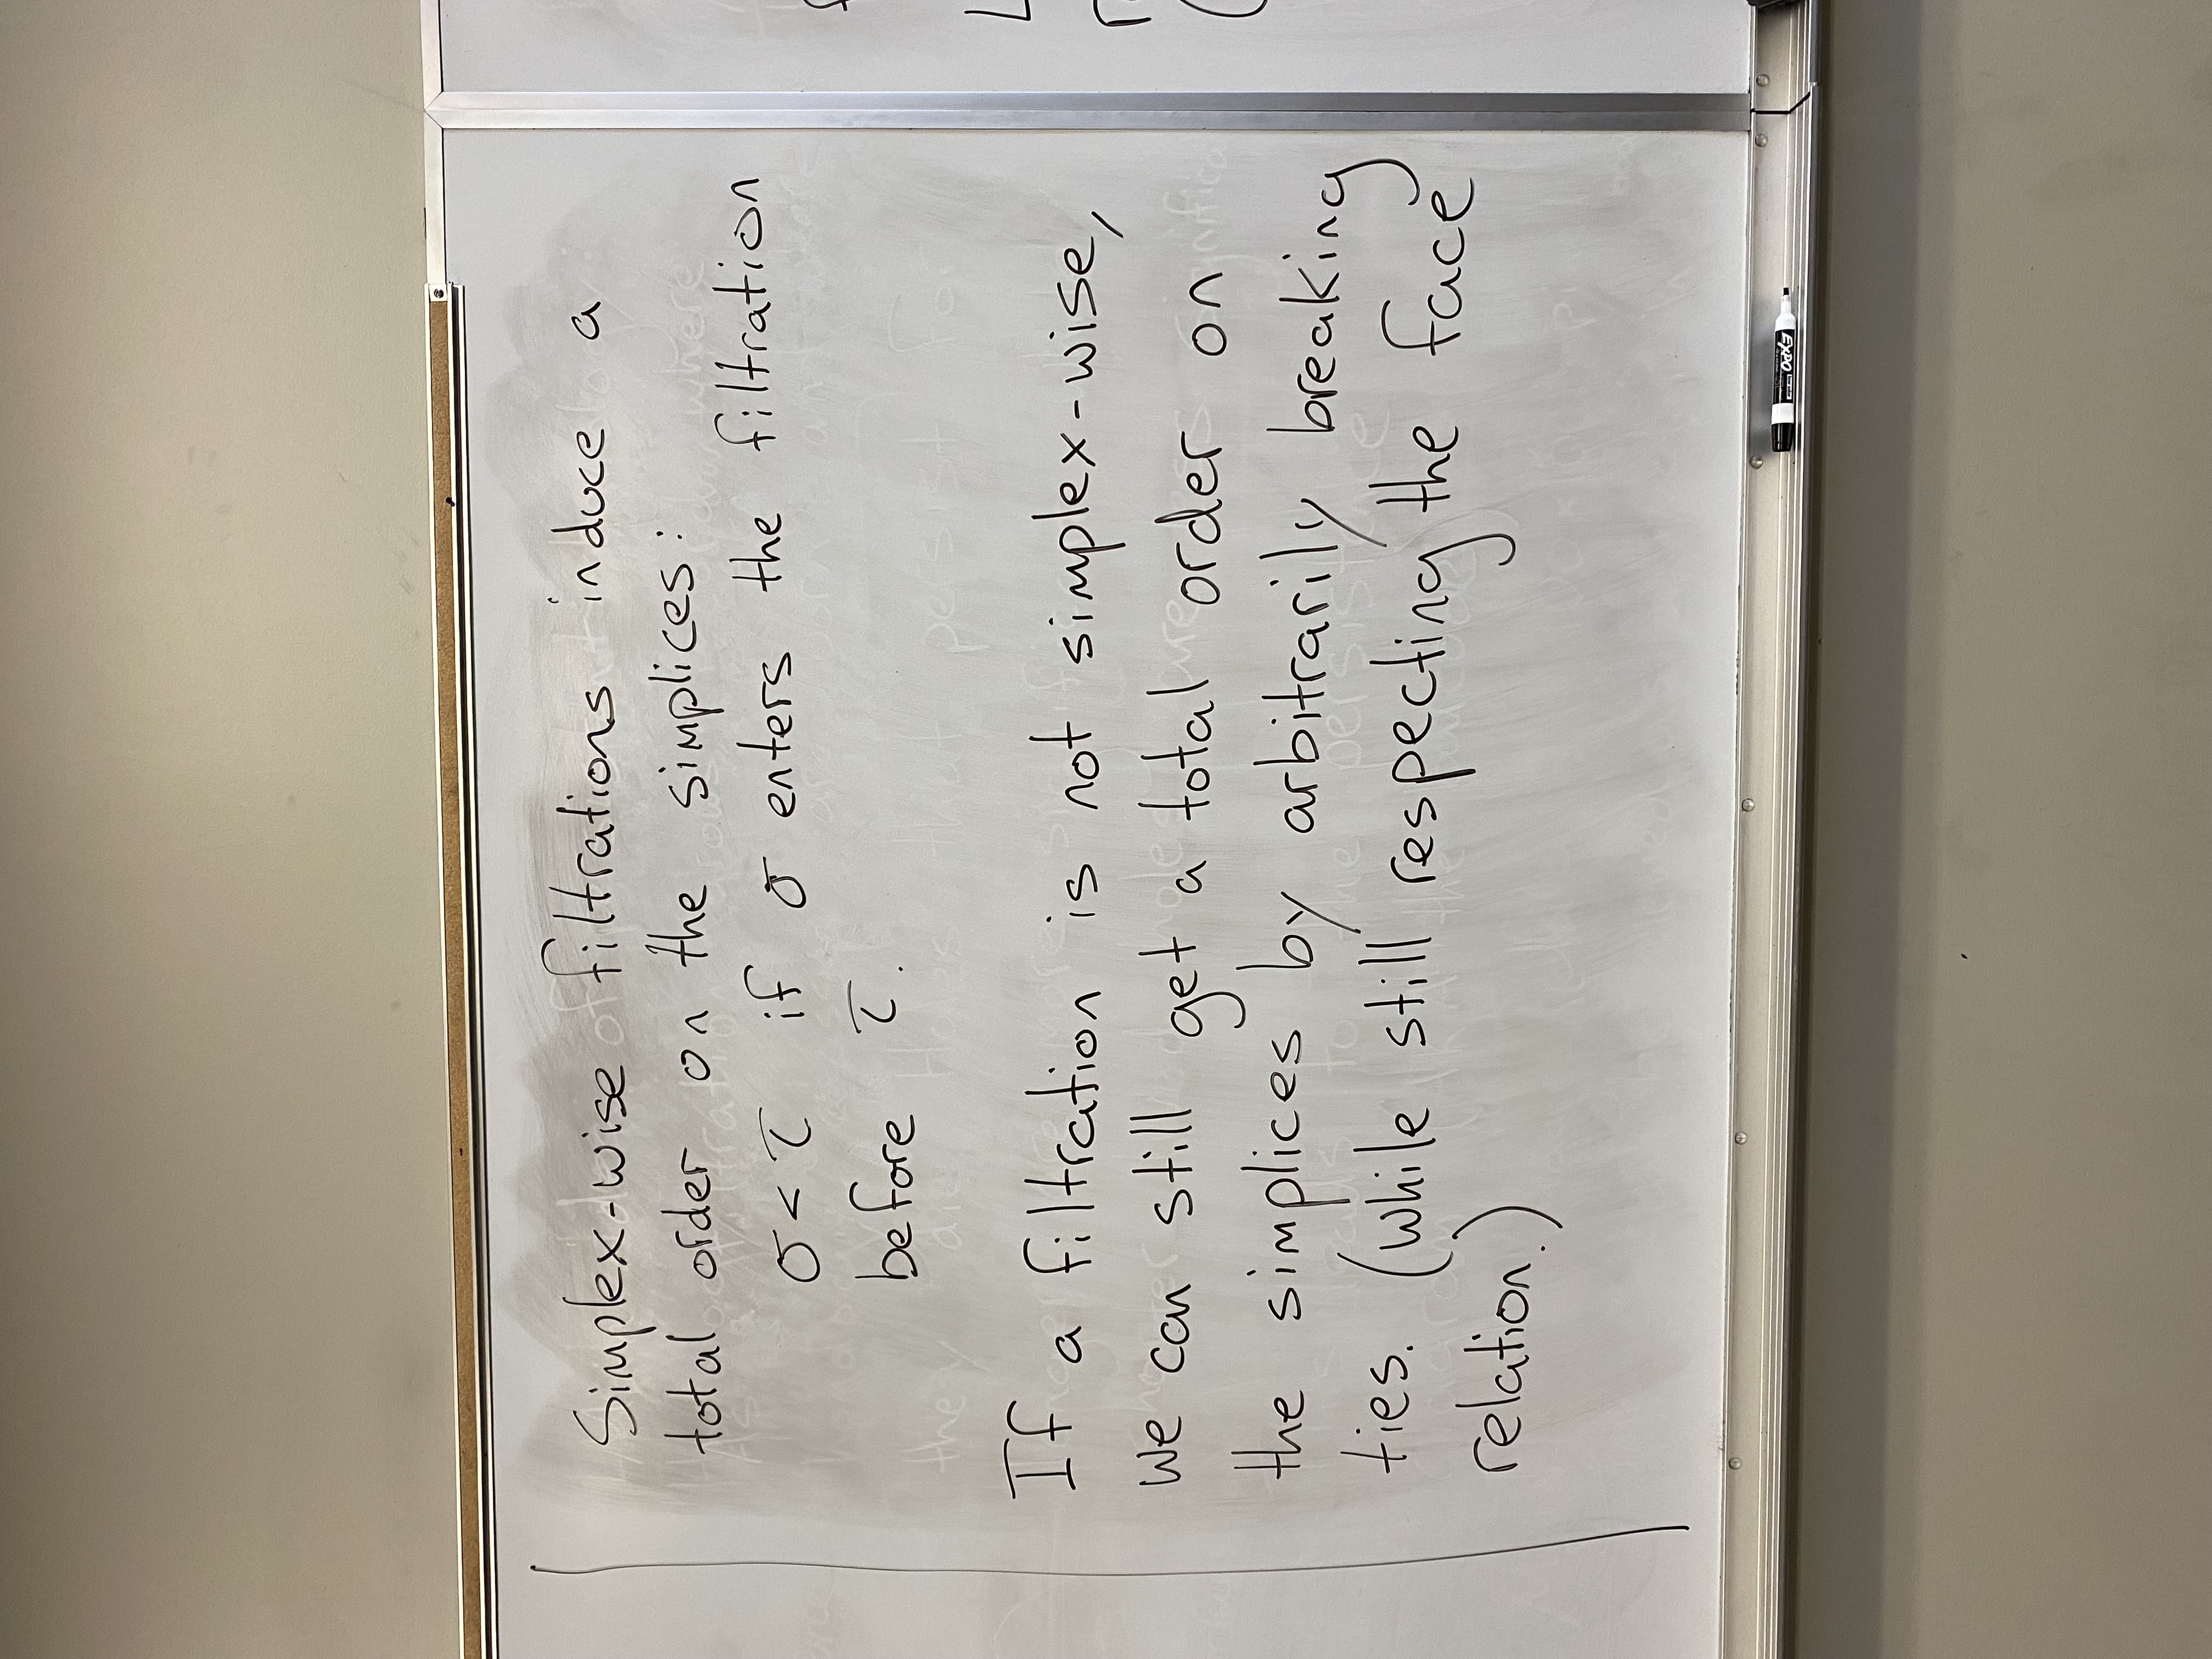 Simplex-wise filtrations induce a
total order on the simplices:
σ < τ if σ enters the filtration
before τ.
If a filtration is not simplex-wise,
we can still get a total order on
the simplices by arbitrarily breaking
ties. (while still respecting the face
relation.)
EXPO